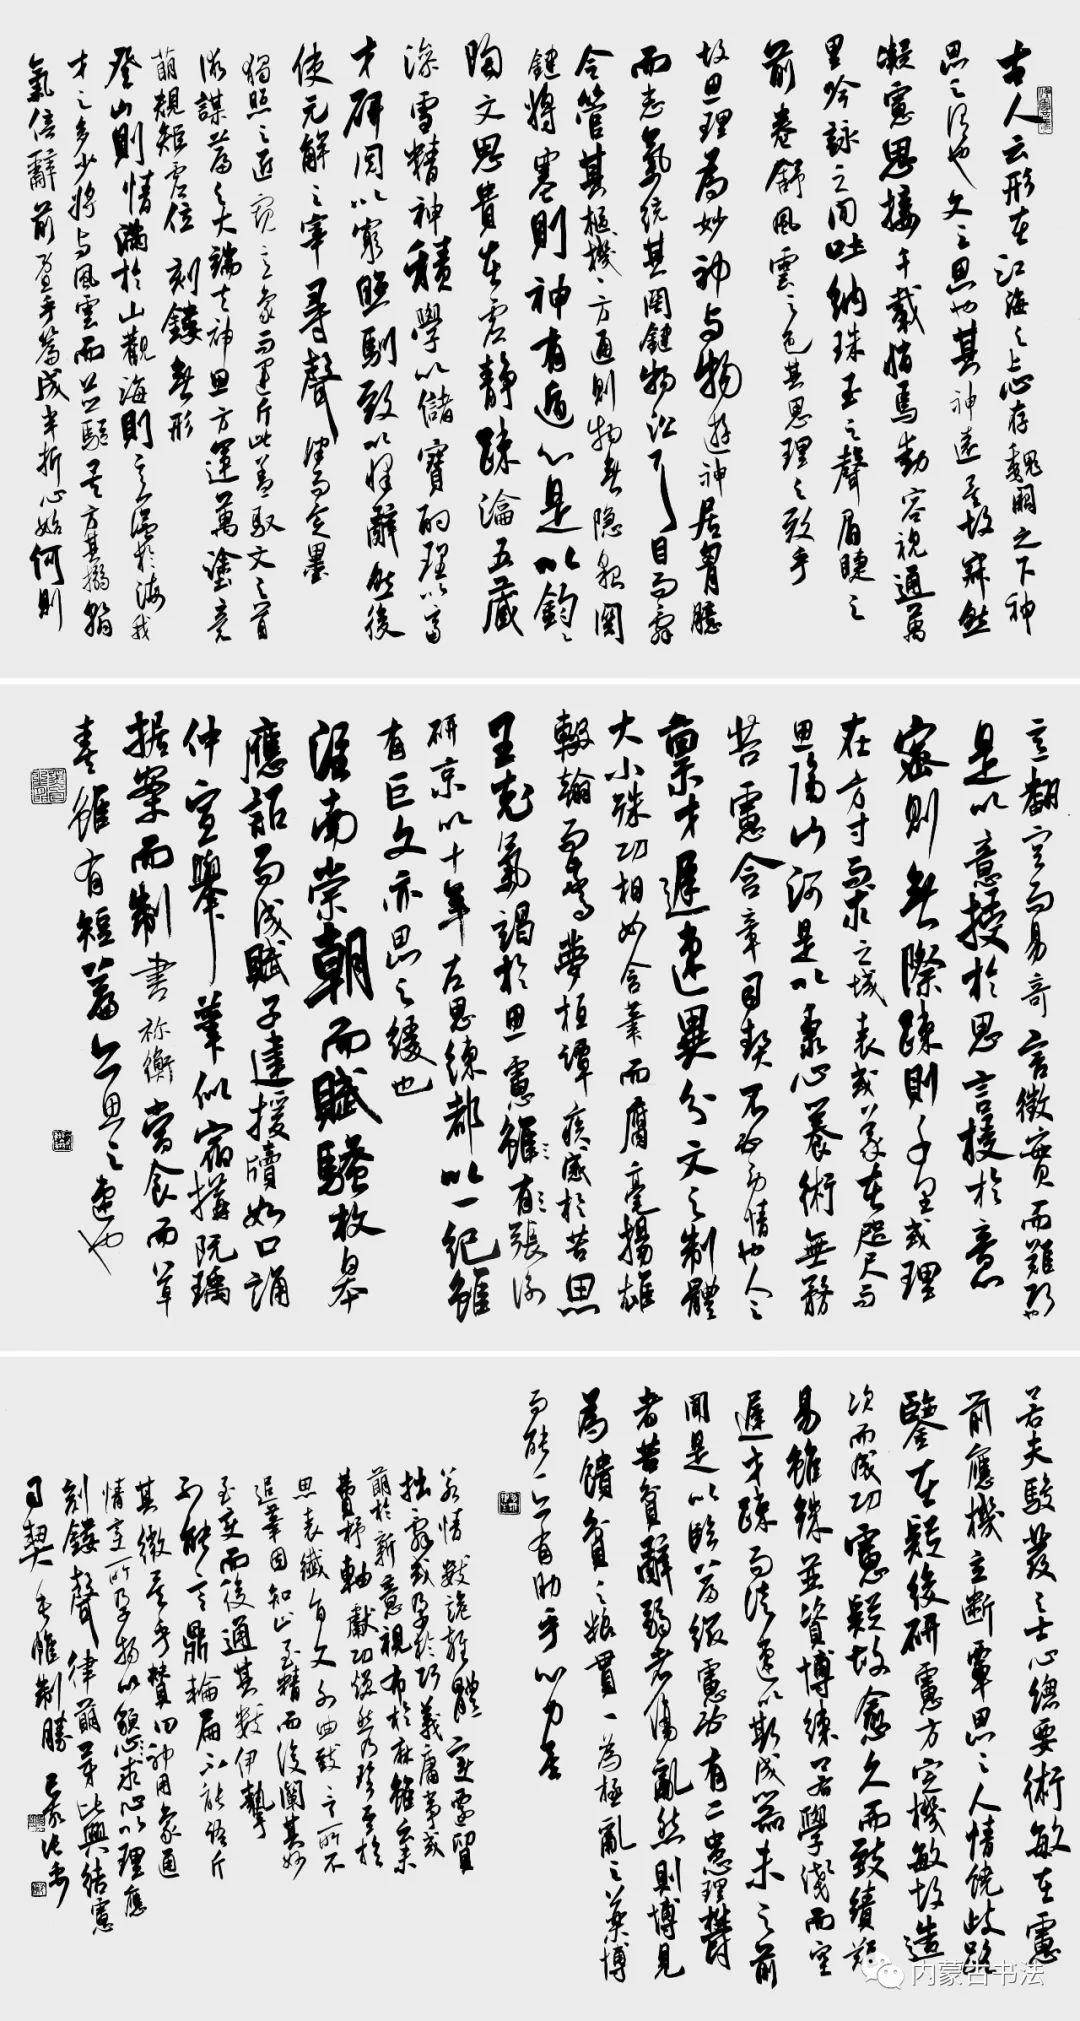 古人云形在江海之上心存魏闕之下神
思之謂也文之思也其神遠矣故寂然
凝慮思接千載悄焉動容視通萬
里吟詠之間吐納珠玉之聲眉睫之
前卷舒風雲之色其思理之致乎
故思理為妙神与物遊神居胷臆
而志氣統其關鍵物沿耳目而辭
令管其樞機樞機方通則物無隱貌關
鍵將塞則神有遁心是以陶鈞
陶文思貴在虛靜疏瀹五藏
澡雪精神積學以儲寶酌理以富
才研閱以窮照馴致以懌辭然後
使元解之宰尋聲律而定墨
獨照之匠窺意象而運斤此蓋馭文之首
術謀篇之大端夫神思方運萬塗竞
萌規矩虛位刻鏤無形
登山則情滿於山觀海則意溢於海我
才之多少將与風雲而並驅矣方其搦翰
氣倍辭前暨乎篇成半折心始何則
意翻空而易奇言徵實而難巧也
是以意授於思言授於意
密則無際疎則千里或理
在方寸而求之域表或義在咫尺而
思隔山河是以秉心養術無務
苦慮含章司契不必勞情也人之
禀才遲速異分文之制體
大小殊功相如含筆而腐毫揚雄
輟翰而驚夢桓譚疾感於苦思
王充氣竭於思慮張衡
研京以十年左思練都以一紀雖
有巨文亦思之緩也
淮南崇朝而賦騷枚皋
應詔而成賦子建援牘如口誦
仲宣舉筆似宿搆阮瑀
据案而制書祢衡當食而草
奏雖有短篇亦思之速也
若夫駿發之士心總要術敏在慮
前應機立斷覃思之人情饒歧路
鑒在疑後研慮方定機敏故造
次而成功慮疑故愈久而致績難
易雖殊並資博練若學淺而空
遲才疎而徒速以斯成器未之前
聞是以臨篇綴慮必有二患理欝
者苦貧辭弱者傷亂然則博見
為饋貧之粮貫一為拯亂之藥博
而能一亦有助乎心力矣
若情數詭雜體變遷貿
拙辭或孕於巧義庸事或
萌於新意視布於麻雖云未
費杼軸獻功焕然乃珍至於
思表纖旨文外曲致言所不
追筆固知止至精而後闡其妙
至變而後通其數伊摯
不能言鼎輪扁不能語斤
其微矣乎贊曰神用象通
情變所孕物以貌求心以理應
刻鏤聲律萌芽比興結慮
司契垂帷制勝
内蒙古书法